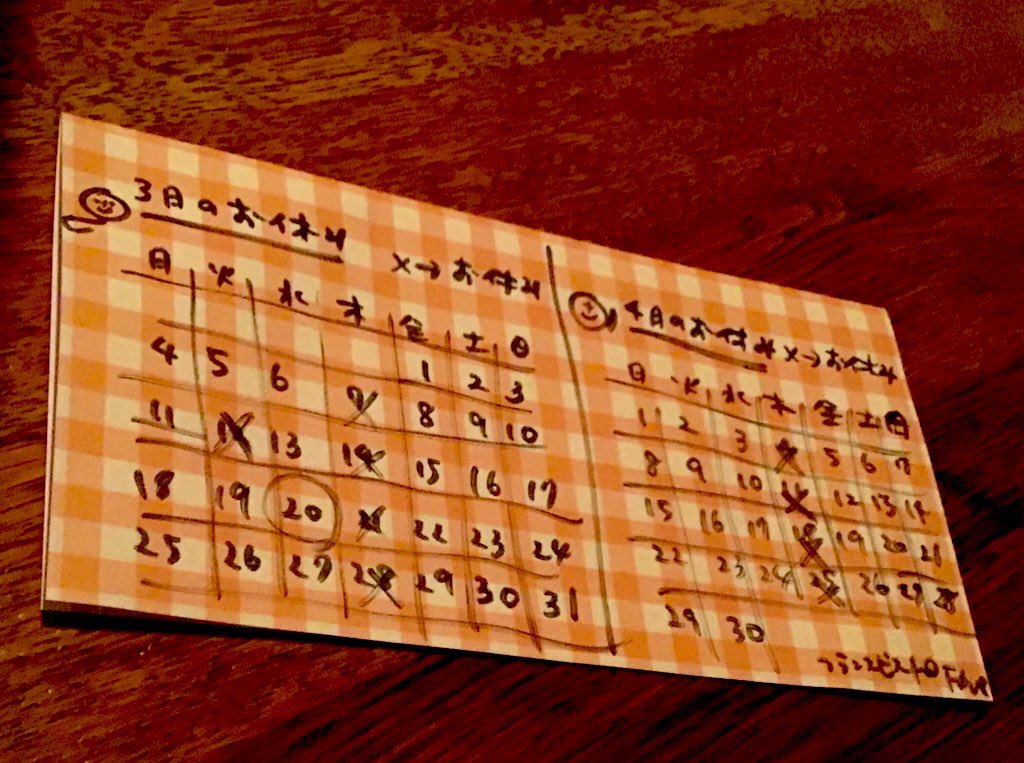 3月のお休み
×→お休み
月 火 水 木 金 土 日
1 2 3
4 5 6 7 8 9 10
11 12 13 14 15 16 17
18 19 20 21 22 23 24
25 26 27 28 29 30 31
4月のお休み ×→お休み
月 火 水 木 金 土 日
1 2 3 4 5 6 7
8 9 10 11 12 13 14
15 16 17 18 19 20 21
22 23 24 25 26 27 28
29 30
フランスビストロ